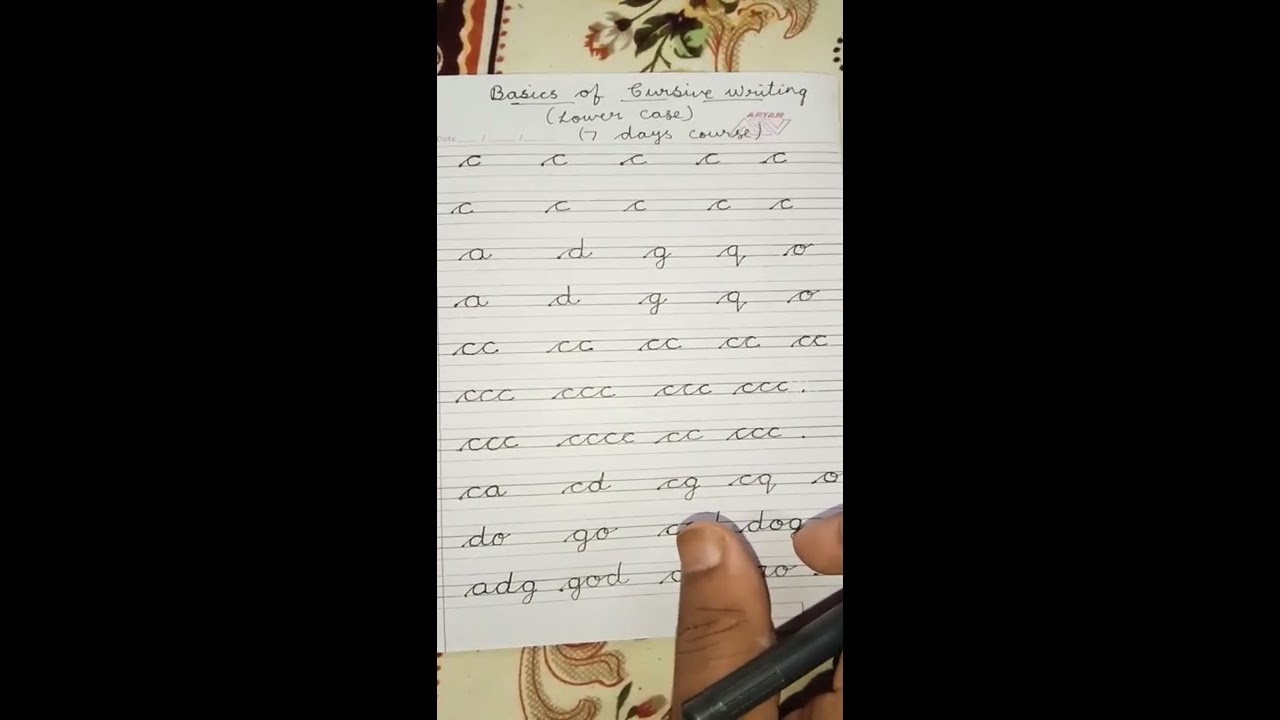 Basics of Cursive Writing
(Lower case)
(7 days course)
ARYAN
Date / /
c c c c c
c c c c c
a d g q o
a d g q o
cc cc cc cc cc
ccc ccc ccc ccc .
ccc cccc cc ccc .
ca cd cg cq o
do go dog
adg god